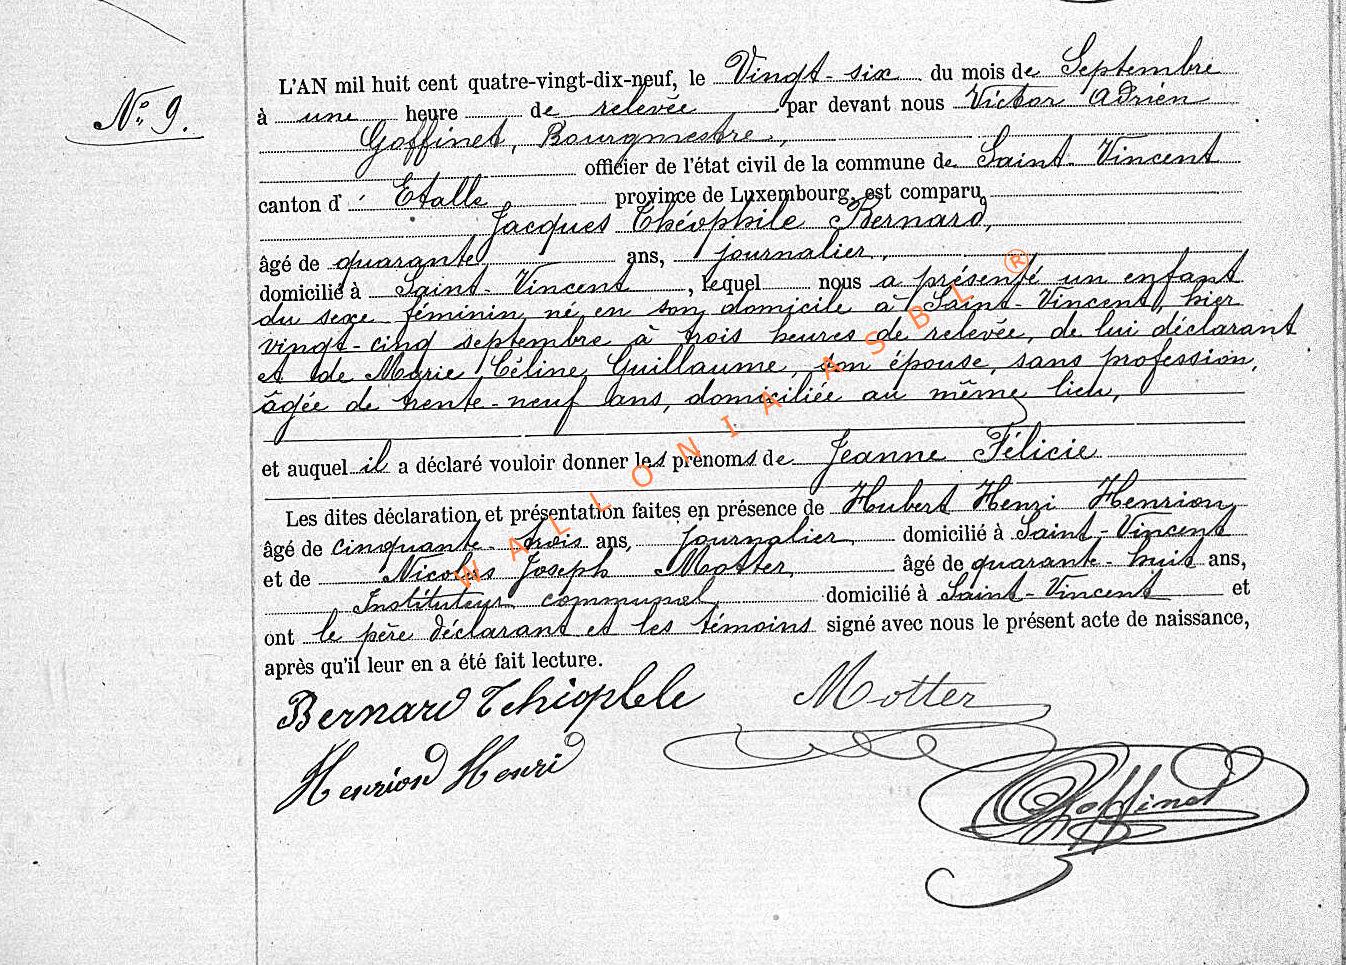 L'AN mil huit cent quatre-vingt-dix-neuf, le Vingt-six du mois de Septembre
No. 9.
à une heure de relevée par devant nous Victor Adrien
Goffinet, Bourgmestre,
officier de l'état civil de la commune de Saint-Vincent
canton d' Etalle province de Luxembourg, est comparu
Jacques Théophile Bernard,
âgé de quarante ans, journalier,
domicilié à Saint-Vincent, lequel nous a présenté un enfant
du sexe féminin, né en son domicile à Saint-Vincent, hier
vingt-cinq septembre à trois heures de relevée, de lui déclarant
et de Marie Céline Guillaume, son épouse, sans profession,
âgée de trente-neuf ans, domiciliée au même lieu,
et auquel il a déclaré vouloir donner les prénoms de Jeanne Félicie
Les dites déclaration et présentation faites en présence de Hubert Henri Henrion,
âgé de cinquante-trois ans, journalier domicilié à Saint-Vincent
et de Nicolas Joseph Motter, âgé de quarante-huit ans,
Instituteur communal, domicilié à Saint-Vincent et
ont le père déclarant et les témoins signé avec nous le présent acte de naissance,
après qu'il leur en a été fait lecture.
Bernard Thiophle Motter
Henrion Henri
Goffinet
WALLONIA ASBL ®